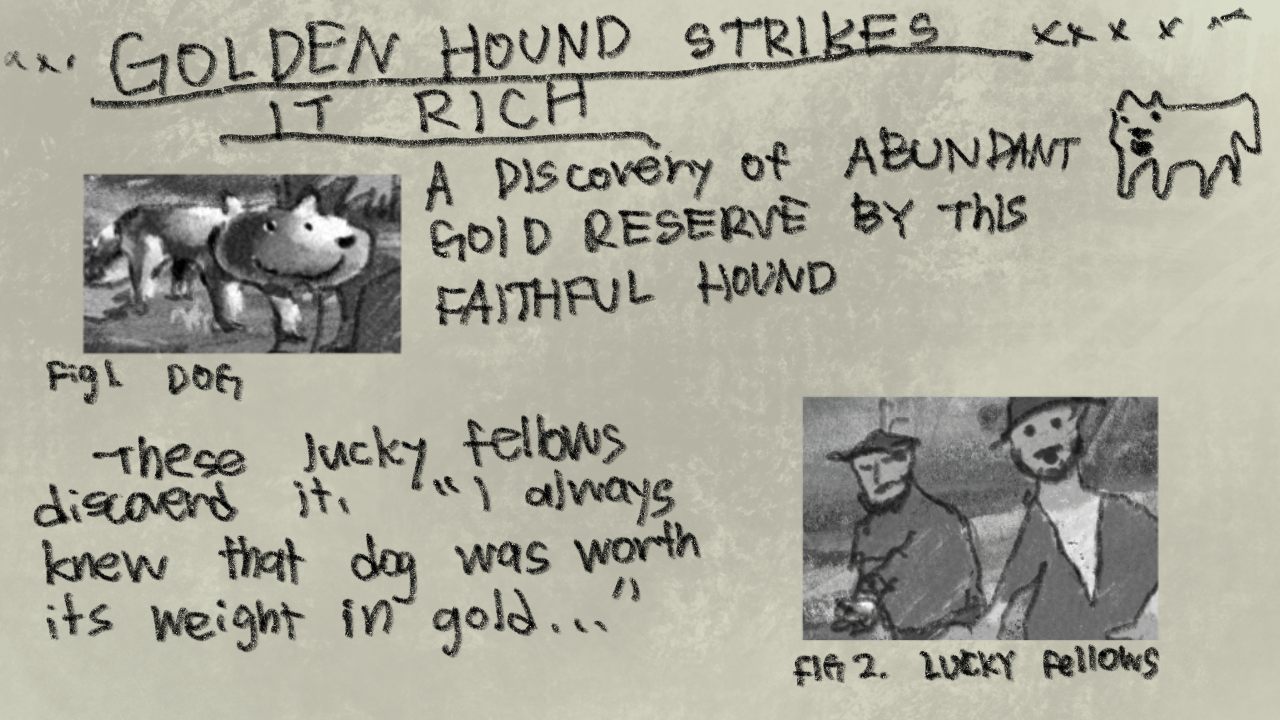 GOLDEN HOUND STRIKES
IT RICH
A DIScovery of ABUNDANT
GOlD RESERVE BY This
FAITHFUL HOUND
Fig 1. DOG
These lucky fellows
discoverd it. "I always
knew that dog was worth
its weight in gold..."
FIG 2. LUCKY Fellows